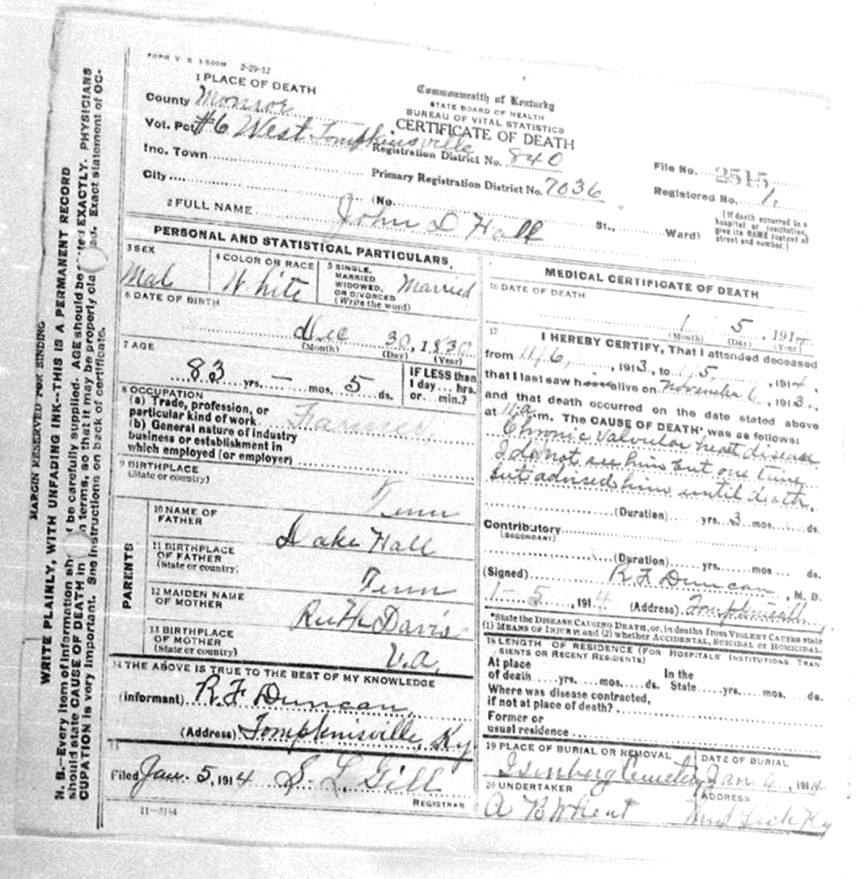 FORM V. S. 1-500M 2-29-12
1 PLACE OF DEATH
County Monroe
Vot. Pct #6 West Tompkinsville
Inc. Town
City
Commonwealth of Kentucky
STATE BOARD OF HEALTH
BUREAU OF VITAL STATISTICS
CERTIFICATE OF DEATH
Registration District No. 840
Primary Registration District No. 7036
(No. St., Ward)
File No. 2515
Registered No. 1.
(If death occurred in a
hospital or institution,
give its NAME instead of
street and number.)
2 FULL NAME John D Hall
PERSONAL AND STATISTICAL PARTICULARS
3 SEX
Mal
4 COLOR OR RACE
White
5 SINGLE,
MARRIED
WIDOWED,
OR DIVORCED
(Write the word)
Married
6 DATE OF BIRTH
Dec 30, 1830
(Month) (Day) (Year)
7 AGE
83 yrs. — mos. 5 ds.
IF LESS than
1 day... hrs.
or... min.?
8 OCCUPATION
(a) Trade, profession, or
particular kind of work Farmer
(b) General nature of industry
business or establishment in
which employed (or employer)
9 BIRTHPLACE
(State or country)
Tenn
PARENTS
10 NAME OF
FATHER
Dake Hall
11 BIRTHPLACE
OF FATHER
(State or country)
Tenn
12 MAIDEN NAME
OF MOTHER
Ruth Davis
13 BIRTHPLACE
OF MOTHER
(State or country)
V.a.
14 THE ABOVE IS TRUE TO THE BEST OF MY KNOWLEDGE
(informant) R. F Duncan
(Address) Tompkinsville, Ky
15
Filed Jan. 5, 1914 S. L. Gill
REGISTRAR
11-3184
MEDICAL CERTIFICATE OF DEATH
16 DATE OF DEATH
1 5, 1914
(Month) (Day) (Year)
17
I HEREBY CERTIFY, That I attended deceased
from 11/6, 1913, to 1/5, 1914,
that I last saw alive on November 6, 1913,
and that death occurred on the date stated above
at 11 a m. The CAUSE OF DEATH* was as follows:
Chronic Valvular heart disease
I do not see him but one time
but advised him until death.
(Duration) yrs. 3 mos. ds.
Contributory
(SECONDARY)
(Duration) yrs. mos. ds.
(Signed) R. F Duncan, M. D.
1-5, 1914 (Address) Tompkinsville
*State the DISEASE CAUSING DEATH, or, in deaths from VIOLENT CAUSES state
(1) MEANS OF INJURY; and (2) whether ACCIDENTAL, SUICIDAL or HOMICIDAL.
18 LENGTH OF RESIDENCE (FOR HOSPITALS INSTITUTIONS, TRANSIENTS OR RECENT RESIDENTS)
At place
of death yrs. mos. ds.
In the
State yrs. mos. ds.
Where was disease contracted,
if not at place of death?
Former or
usual residence
19 PLACE OF BURIAL OR REMOVAL
Isenberg Cemetery
DATE OF BURIAL
Jan 6, 1914
20 UNDERTAKER
A B Wheat
ADDRESS
Mud Lick Ky
MARGIN RESERVED FOR BINDING
WRITE PLAINLY, WITH UNFADING INK--THIS IS A PERMANENT RECORD
N. B.—Every item of information be carefully supplied. AGE should be EXACTLY. PHYSICIANS
should state CAUSE OF DEATH in terms, so that it may be properly Exact statement of OC-
CUPATION is very important. See instructions on back of certificate.